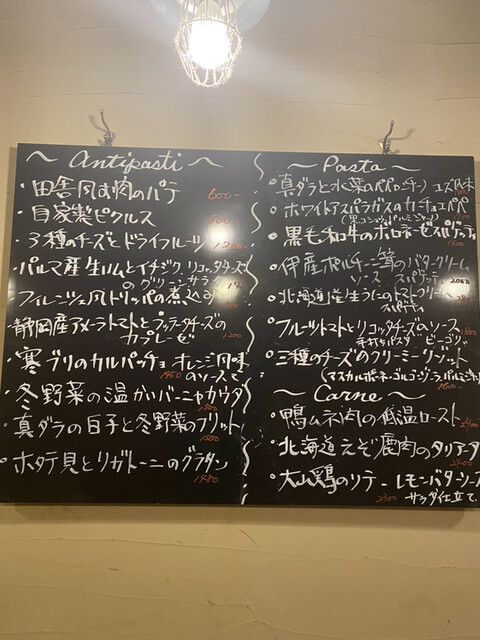 〜 Antipasti 〜
・田舎風お肉のパテ 600-
・自家製ピクルス
・3種のチーズとドライフルーツ
パルマ産生ハムとイチジク、リコッタチーズ
のグリーンサラダ
フィレンツェ風トリッパの煮込み
静岡産アメーラトマトとブッラータチーズの
カプレーゼ 1200
・寒ブリのカルパッチョ オレンジ風味
のソースで 1450
・冬野菜の温かいバーニャカウダ
1200
・真ダラの白子と冬野菜のフリット
1200
・ホタテ貝とリガトーニのグラタン
1480
〜 Pasta 〜
・真ダラと水菜のペペロンチーノ ユズ風味
・ホワイトアスパラガスのカーチョエペペ
・黒毛和牛のボロネーゼ スパゲッティ
1600
・伊産ポルチーニ茸のバタークリーム
ソース スパゲッティ 2080
・北海道産生うにのトマトクリーム
スパゲティ
・フルーツトマトとリコッタチーズのソース
手打ちパスタ ピーゴリ
・三種のチーズのクリーミーリゾット
(マスカルポーネ・ゴルゴンゾーラ・パルミジャーノ)
1600-
〜 Carne 〜
・鴨ムネ肉の低温ロースト 2400
・北海道えぞ鹿肉のタリアータ
2400
・大山鶏のソテー レモンバターソース
2300 サラダ仕立て